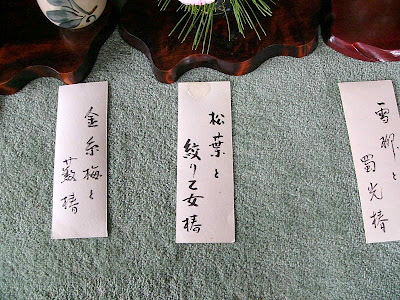 雪柳と
蜀光椿
松葉と
絞り乙女椿
金糸梅と
藪椿